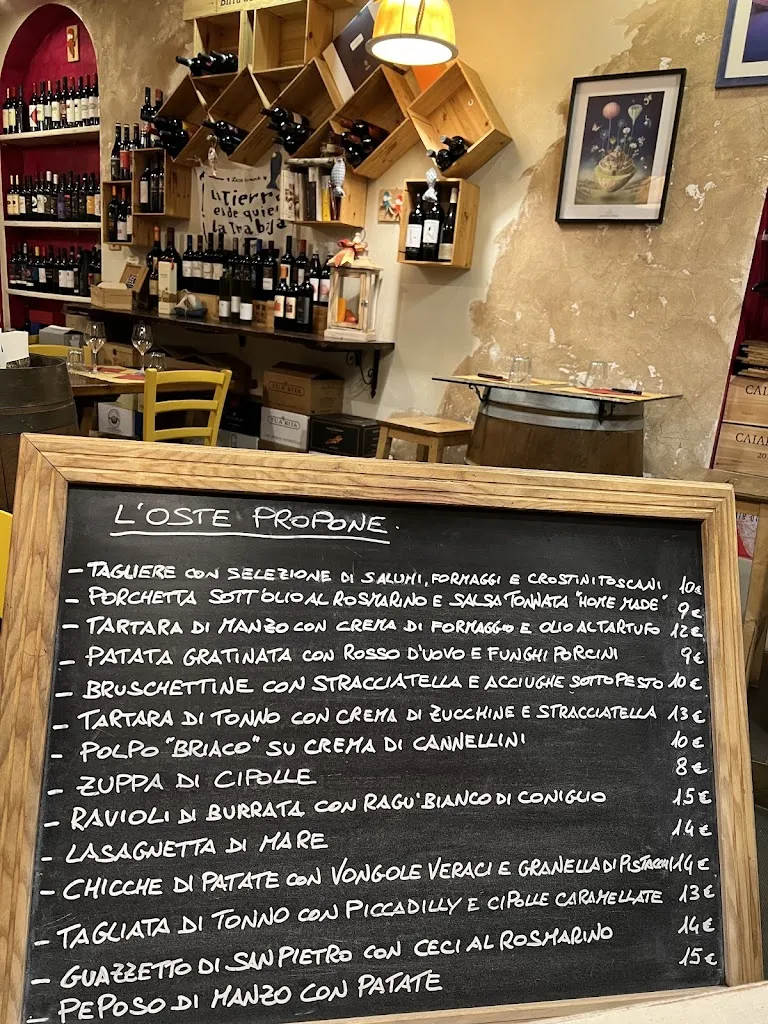 La Tierra
es de quien
La Trabaja
TUA RITA
TUA RITA
L'OSTE PROPONE.
- TAGLIERE CON SELEZIONE DI SALUMI, FORMAGGI E CROSTINI TOSCANI 10€
- PORCHETTA SOTT'OLIO AL ROSMARINO E SALSA TONNATA "HOME MADE" 9€
- TARTARA DI MANZO CON CREMA DI FORMAGGIO E OLIO AL TARTUFO 12€
- PATATA GRATINATA CON ROSSO D'UOVO E FUNGHI PORCINI 9€
- BRUSCHETTINE CON STRACCIATELLA E ACCIUGHE SOTTO PESTO 10€
- TARTARA DI TONNO CON CREMA DI ZUCCHINE E STRACCIATELLA 13€
- POLPO "BRIACO" SU CREMA DI CANNELLINI 10€
- ZUPPA DI CIPOLLE 8€
- RAVIOLI DI BURRATA CON RAGU' BIANCO DI CONIGLIO 15€
- LASAGNETTA DI MARE 14€
- CHICCHE DI PATATE CON VONGOLE VERACI E GRANELLA DI PISTACCHI 14€
- TAGLIATA DI TONNO CON PICCADILLY E CIPOLLE CARAMELLATE 13€
- GUAZZETTO DI SAN PIETRO CON CECI AL ROSMARINO 14€
- PEPOSO DI MANZO CON PATATE 15€